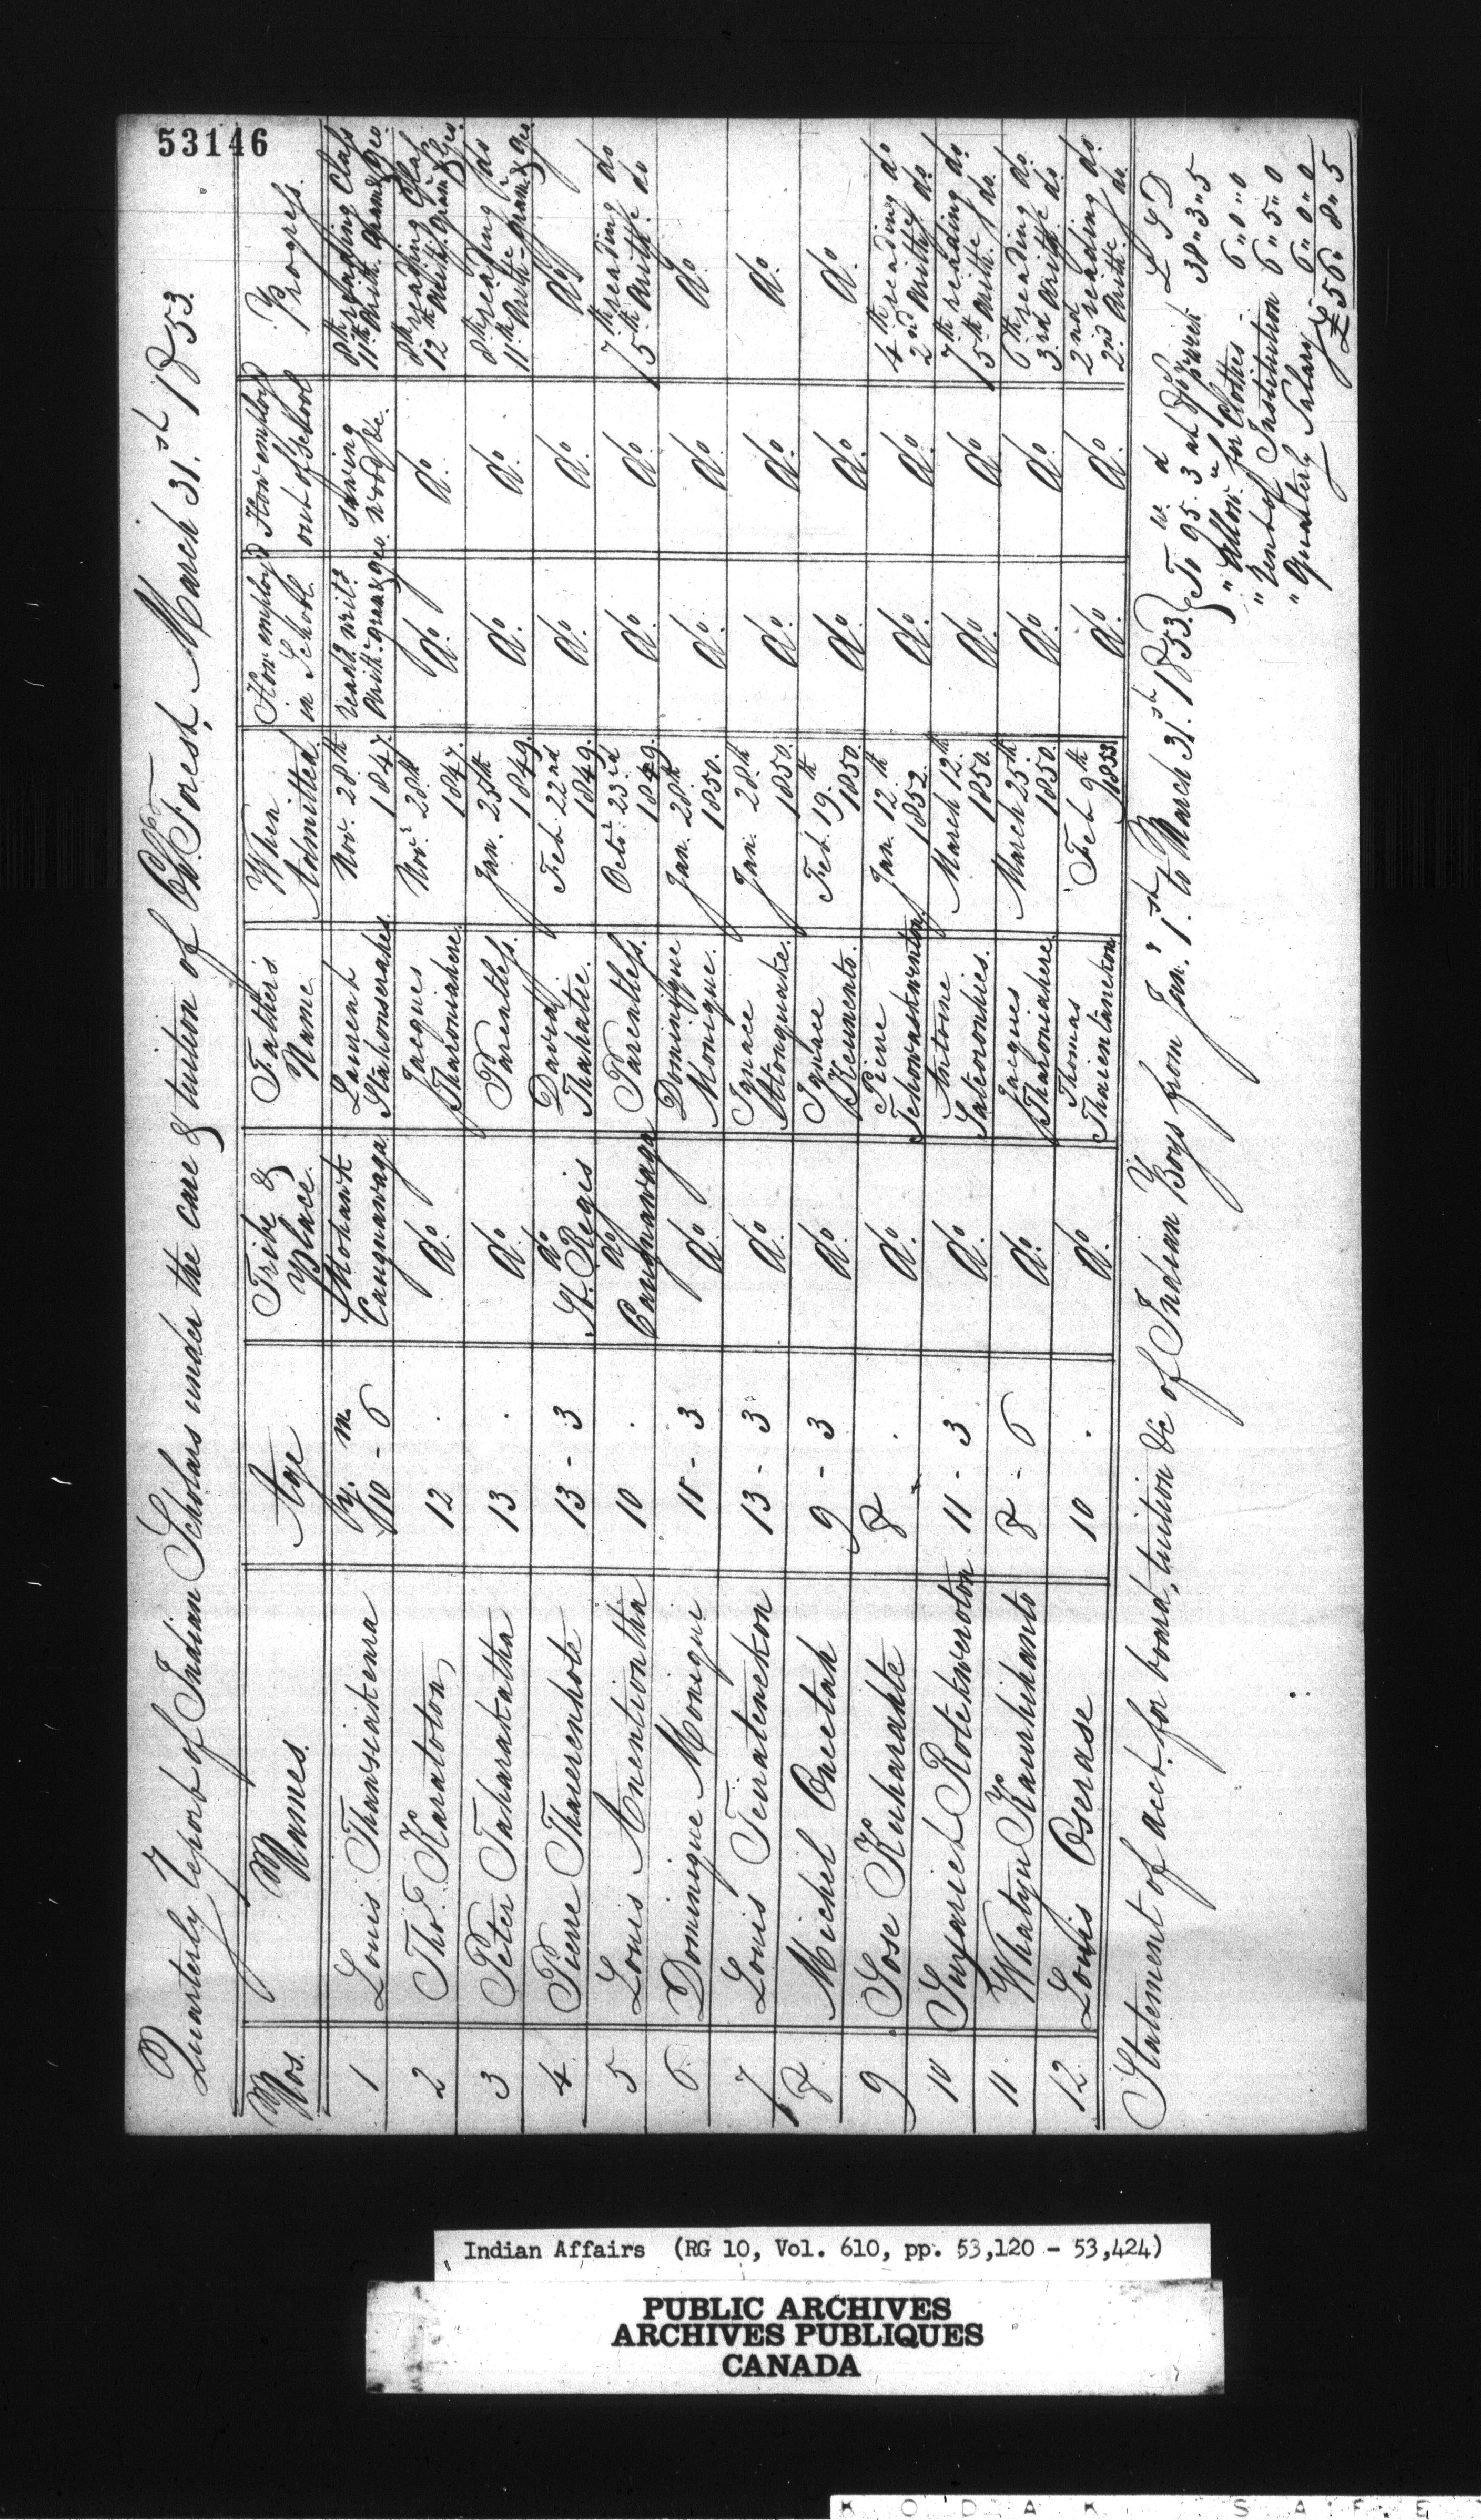 53146
Quarterly Report of Indian Scholars under the care & tuition of Chs. Forest, March 31st. 1853.
Nos. Names. Age Tribe & Place. Father's Name. When Admitted. How employd in School. How employd out of School Progress.
1 Louis Thawseiatkenra y. m. 10 - 6 Mohawk Caugnawaga. Laurent Stahonserahes. Nov. 28th 1847. Read.g writ.g Arith. gram & geo. sawing wood &c. 8th reading Class 11th Arith. Gram & geo.
2 Thos. Karatoton 12 . do. Jacques Tharoniahere. Novr 28th 1847. do. do. 8th reading Class 12th Arith. Gram & geo.
3 Peter Taharakatha 13 . do. Parentless. Jan. 25th 1849. do. do. 8th reading do 11th Arith - Gram. & geo.
4 Pierre Thaierenhote 13 - 3 do St. Regis David Thahatie. Feb. 22nd 1849. do. do. do.
5 Louis Anentiontha 10 . do Caughnawaga Parentless. Octr. 23rd 1849. do. do. 7th reading do 5th Arith. do
6 Dominique Monique 11 - 3 do. Dominique Monique. Jan. 28th 1850. do. do. do.
7 Louis Teiratenekon 13 - 3 do. Ignace Atonquake. Jan. 28th 1850. do. do. do.
8 Michel Oneetah 9 - 3 do. Ignace Kenento. Feb. 19th 1850. do. do. do.
9 Sose Kuharahte 8 . do. Pierre Tehowaskwenton. Jan. 12th 1852. do. do. 4th reading do 2nd Arith. do.
10 Susariet Rotekweroton 11 - 3 do. Antoine Sateoronhies. March 12th 1850. do. do. 7th reading do. 5th Arith. do.
11 Whatyu Kanrhihanto 8 - 6 do. Jacques Tharoniahere. March 25th 1850. do. do. 6th reading do. 3rd Arith. do.
12 Louis Oserase 10 . do. Thomas Thaientanekon. Feb. 9th 1853. do. do. 2nd reading do. 2nd Arith. do.
Statement of acct. for board, tuition &c of Indian Boys from Jan.y 1st. to March 31st. 1853.
L S D
To 95 w. 3 d 38 " 3 " 5
" Allow.ce for Clothes 6 " 0 " 0
" Rent of Institution 6 " 5 " 0
" Quarterly Salary 6 " 0 " 0
£56 " 8 " 5
Indian Affairs (RG 10, Vol. 610, pp. 53,120 - 53,424)
PUBLIC ARCHIVES
ARCHIVES PUBLIQUES
CANADA
K O D A K S A F E